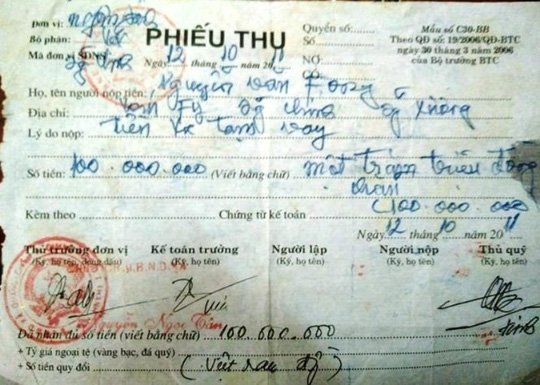 Đơn vị:
Bộ phận:
Mã đơn vị SDNS:
PHIẾU THU
Ngày 12 tháng 10 năm 2011
Quyển số:
Số
NỢ:
CÓ:
Mẫu số C30-BB
Theo QĐ số: 19/2006/QĐ-BTC
ngày 30 tháng 3 năm 2006
của Bộ trưởng BTC
Họ, tên người nộp tiền: Nguyễn Văn
Địa chỉ:
Lý do nộp: tiền tạm vay
Số tiền: 100.000.000 (Viết bằng chữ) một trăm triệu đồng
chẵn
(100.000.000
Kèm theo Chứng từ kế toán
Ngày 12 tháng 10 năm 2011
Thủ trưởng đơn vị Kế toán trưởng Người lập Người nộp Thủ quỹ
(Ký, họ tên, đóng dấu) (Ký, họ tên) (Ký, họ tên) (Ký, họ tên) (Ký, họ tên)
Nguyễn Ngọc
Đã nhận đủ số tiền (viết bằng chữ) 100.000.000
+ Tỷ giá ngoại tệ (vàng bạc, đá quý)
+ Số tiền quy đổi